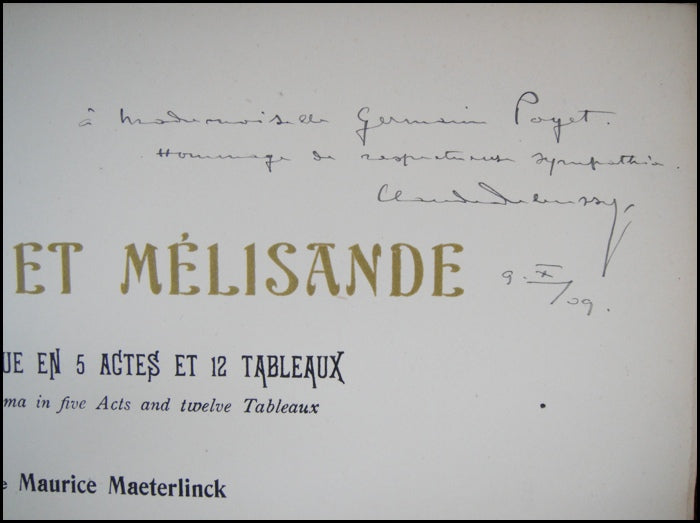 à Mademoiselle Germaine Poyet.
Hommage de respectueuse sympathie.
Claude Debussy
ET MÉLISANDE
9. X/09.
UE EN 5 ACTES ET 12 TABLEAUX
ma in five Acts and twelve Tableaux
e Maurice Maeterlinck